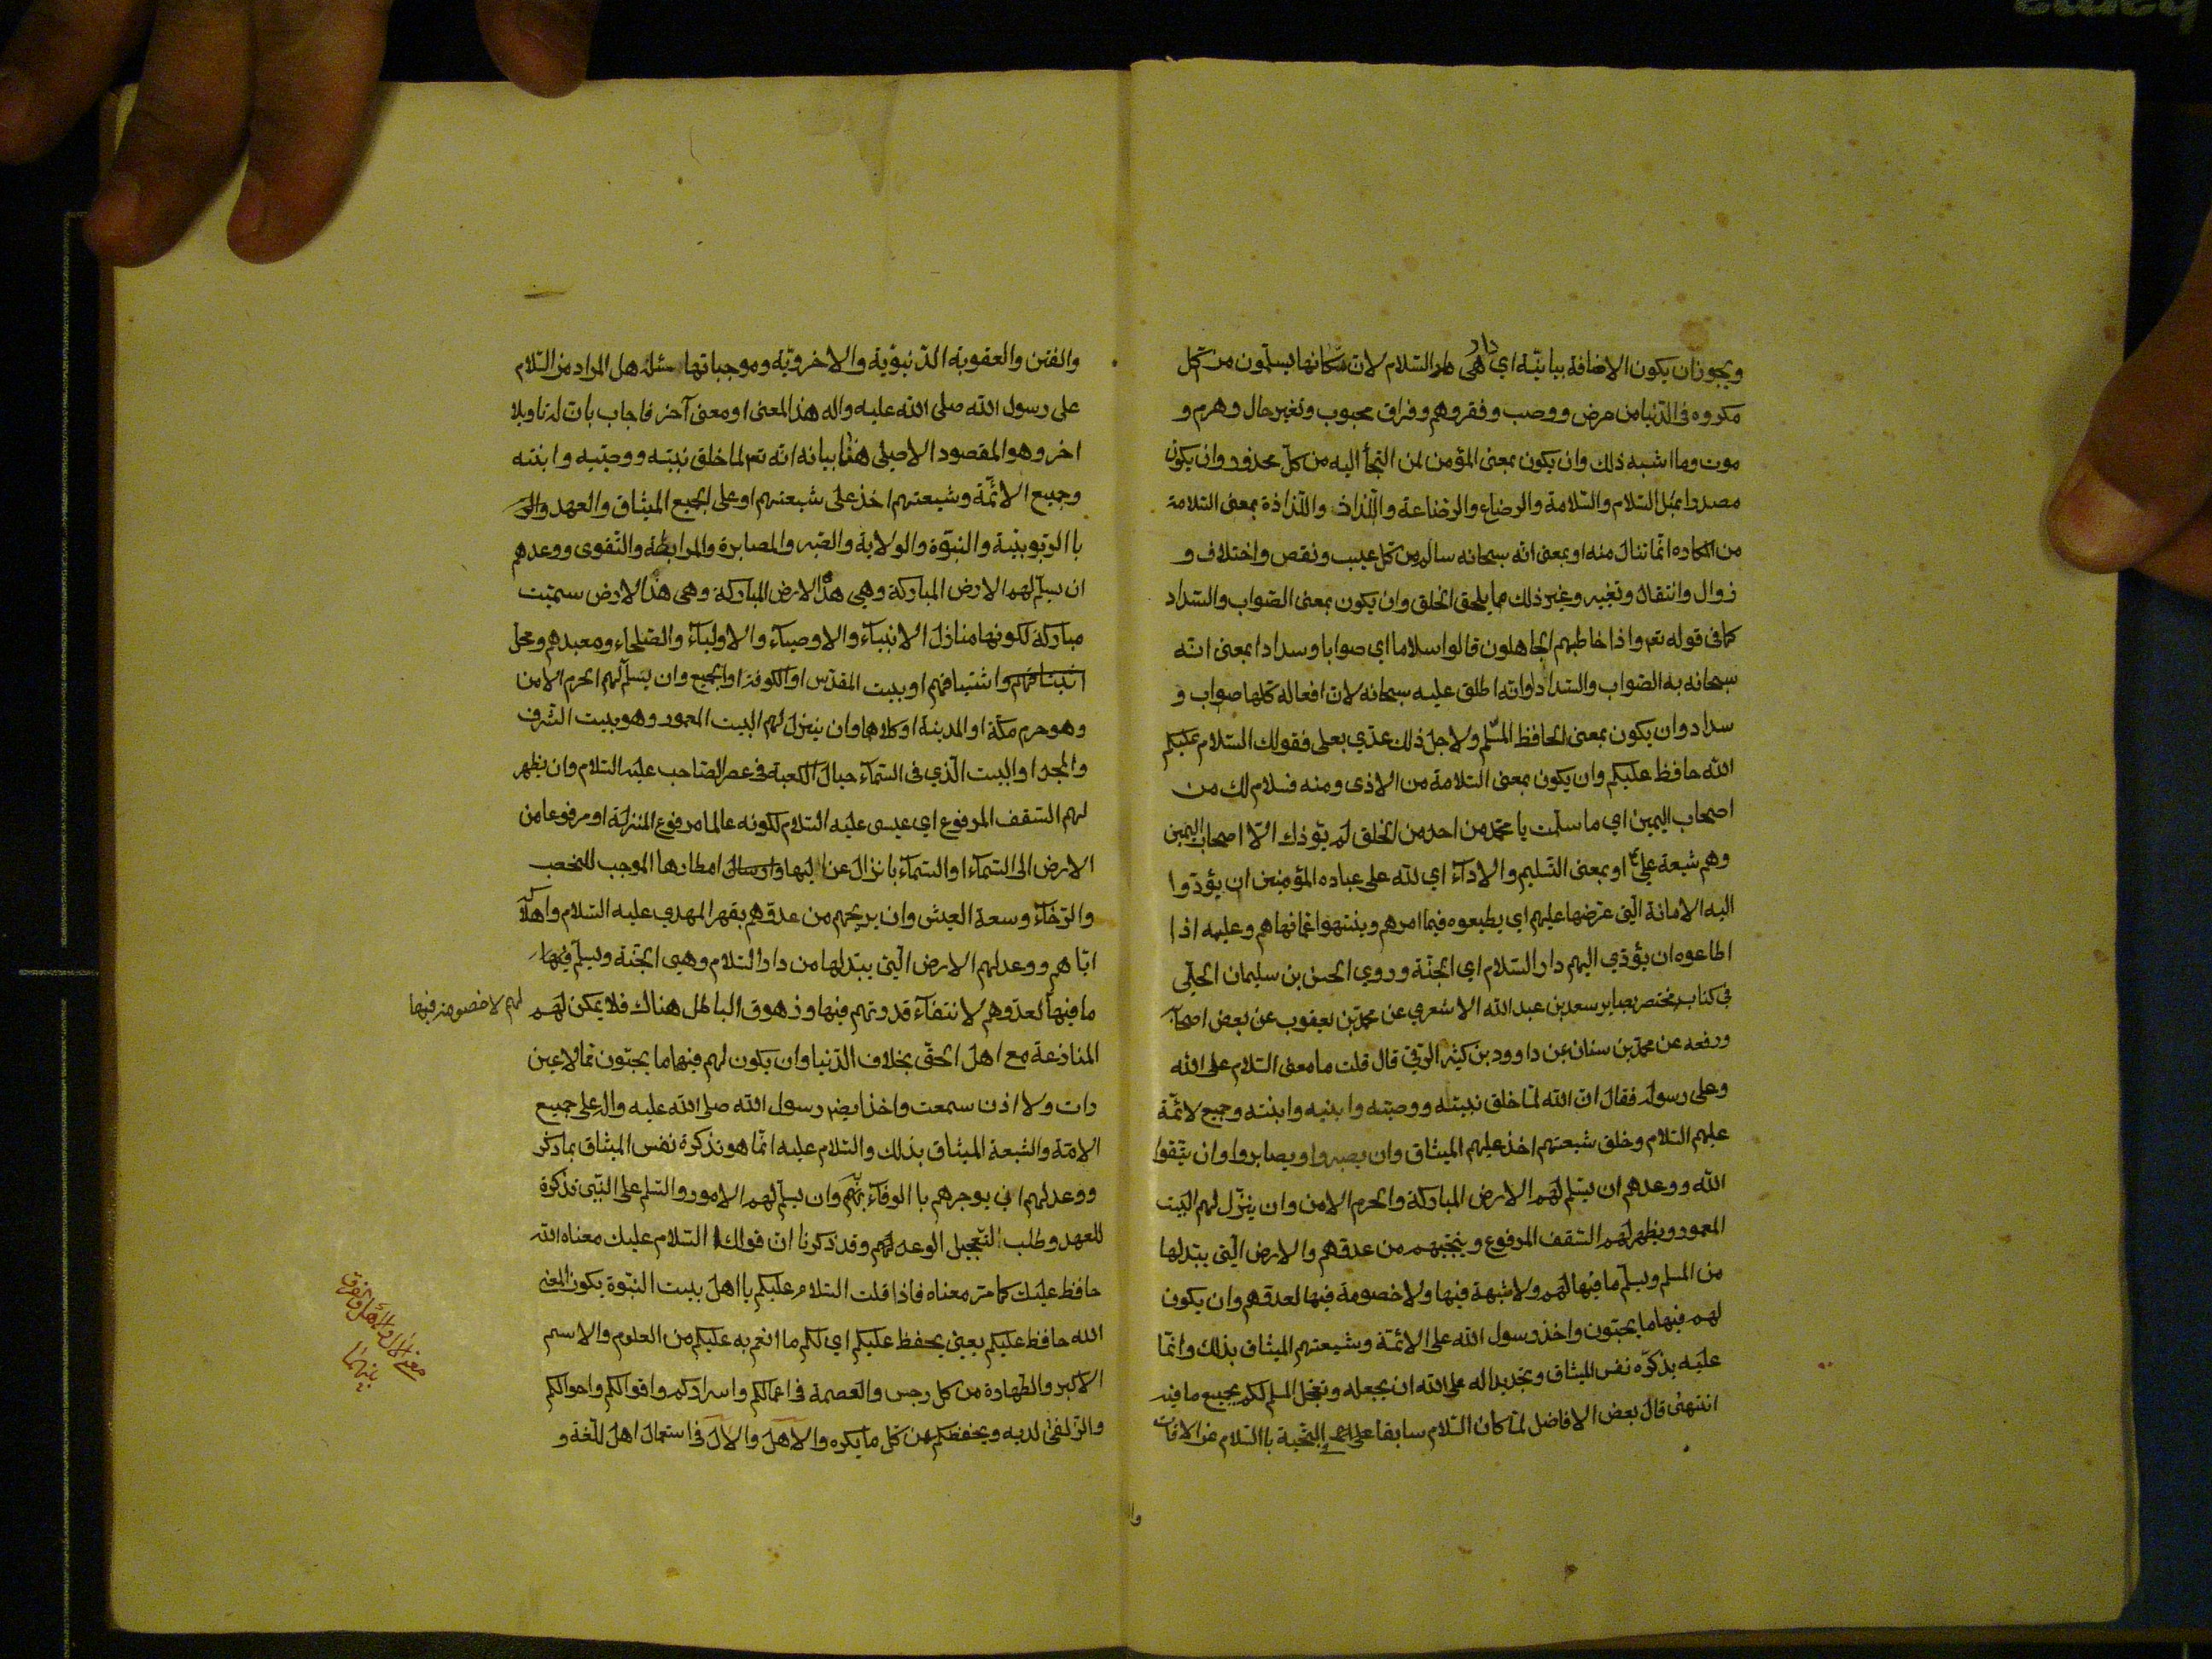 ويجوز ان يكون الاضافة بيانيّة اي هى دار السّلام لانّ سكّانها يسلمون من كلّ
مكروه فى الدّنيا من مرض ووصب وفقر وهم وفراق محبوب وتغير حال وهرم و
موت وما اشبه ذلك وان يكون بمعنى المؤمن لمن التجأ اليه من كلّ محذور وان يكون
مصدرا مثل السّلام والسّلامة والرضاع والرضاعة واللّذاذ واللّذاذة بمعنى السّلامة
من المكاره انّما تنال منه او بمعنى انّه سبحانه سالم من كلّ عيب ونقص واختلاف و
زوال وانتقال وتغيير وغير ذلك مما يلحق الخلق وان يكون بمعنى الصّواب والسّداد
كما فى قوله تع واذا خاطبهم الجاهلون قالوا سلاما اي صوابا وسدادا بمعنى انّه
سبحانه به الصّواب والسّداد او انّه اطلق عليه سبحانه لانّ افعاله كلّها صواب و
سداد وان يكون بمعنى الحافظ المسّلم ولاجل ذلك عدّي بعلى فقولك السّلام عليكم
اللّه حافظ عليكم وان يكون بمعنى السّلامة من الاذى ومنه فسلام لك من
اصحاب اليمين اي ما سلمت يا محمّد من احد من الخلق لم يؤذك الّا اصحاب اليمين
وهم شيعة عليّ او بمعنى التّسليم والاداء اي للّه على عباده المؤمنين ان يؤدّوا
اليه الامانة الّتى عرضها عليهم اي يطيعوه فيما امرهم وينتهوا عمّا نهاهم وعليه اذا
اطاعوه ان يؤدّي اليهم دار السّلام اي الجنّة وروي الحسن بن سليمان الحلّي
في كتاب مختصر بصاير سعد بن عبد اللّه الاشعري عن محمّد بن يعقوب عن بعض اصحابه
ورفعه عن محمّد بن سنان عن داوود بن كثير الرّقى قال قلت ما معنى السّلام على اللّه
وعلى رسوله فقال انّ اللّه لمّا خلق نبيّه ووصيّه وابنيه وابنته وجميع لائمّة
عليهم السّلام وخلق شيعتهم اخذ عليهم الميثاق وان يصبروا ويصابروا وان يتّقوا
اللّه ووعدهم ان يسّلم لهم الارض المباركة والحرم الامن وان ينزّل لهم البيت
المعمور ويظهر لهم السّقف المرفوع وينجّيهم من عدوّهم والارض الّتى يبدلها
من السلم ويسلّم ما فيها لهم ولا شبهة فيها ولا خصومة فيها لعدوّهم وان يكون
لهم فيها ما يحبّون واخذ رسول اللّه على الائمّة وشيعتهم الميثاق بذلك وانّما
عليه يذكّره نفس الميثاق وتجديدا له على اللّه ان يعجله وتعجل السلم لكم بجميع ما فيه
انتهى قال بعض الافاضل لمّا كان السّلام سابقا على التّحيّة باالسّلام من الافات
وا
والفتن والعقوبة الدّنيويّة والاخرويّة وموجباتها سئل هل المراد من السّلام
على رسول اللّه صلى اللّه عليه واله هذا المعنى او معنى آخر فاجاب بانّ له تاويلا
اخر وهو المقصود الاصلى هنا بيانه انّه تع لما خلق نبيّه ووصيّه وابنته
وجميع الائمّة وشيعتهم اخذ على شيعتهم او على الجميع الميثاق والعهد
باالرّبوبيّة والنبوّة والولاية والصّبر والمصابرة والمرابطة والتّقوى ووعدهم
ان يسلّم لهم الارض المباركة وهى هذا الارض المباركة وهى هذا الارض سمّيت
مباركة لكونها منازل الانبياء والاوصياء والاولياء والصّلحاء ومعبدهم ومحلّ
واشتيافهم او بيت المقدّس او الكوفة او الجميع وان يسلّم لهم الحرم الامن
وهو حرم مكّة او المدينة او كلاهما وان ينزل لهم البيت المعمور وهو بيت الشّرف
والمجد او البيت الّذي فى السّماء حيال الكعبة فى عصر الصّاحب عليه السّلام وان يظهر
لهم السّقف المرفوع اي عيسى عليه السّلام لكونه عالما مرفوع المنزلة او مرفوعا من
الارض الى السّماء او السّماء بانزال وارسال امطارها الموجب للخصب
والرّخاء وسعة العيش وان يريحهم من عدوّهم بقهر المهدي عليه السّلام واهلاكه
ايّاهم ووعد لهم الارض الّتى يبدلها من دار السّلام وهى الجنّة ويسلّم فيها
ما فيها لعدوّهم لانتفاء قدرتهم فيها وزهوق الباطل هناك فلا يمكن لهم
لهم لا خصومة فيها
المنازعة مع اهل الحقّ بخلاف الدّنيا وان يكون لهم فيها ما يحبّون ممّا لا عين
رات ولا اذن سمعت واخذ ايضا رسول اللّه صلى اللّه عليه واله على جميع
الامّة والشيعة الميثاق بذلك والسّلام عليه انّما هو تذكرة نفس الميثاق بما ذكر
ووعد لهم ان يوجرهم باالوفاء وان يسلّم لهم الامور والسّلم على النّبى تذكرة
للعهد وطلب التّعجيل الوعد لهم وقد ذكرنا انّ قولك السّلام عليك معناه اللّه
حافظ عليك كما مرّ معناه فاذا قلت السّلام عليكم يا اهل بيت النبّوة يكون المعنى
اللّه حافظ عليكم يعنى يحفظ عليكم اي لكم ما انعم به عليكم من العلوم والاسم
الاكبر والطهارة من كل رجس والعصمة فى اعمالكم واسراركم واقوالكم واحوالكم
والزّلفى لديه ويحفظكم من كلّ ما يكره والاهل والال فى استعمال اهل اللّغة و
معنى الال والاهل والفرق
بينهما